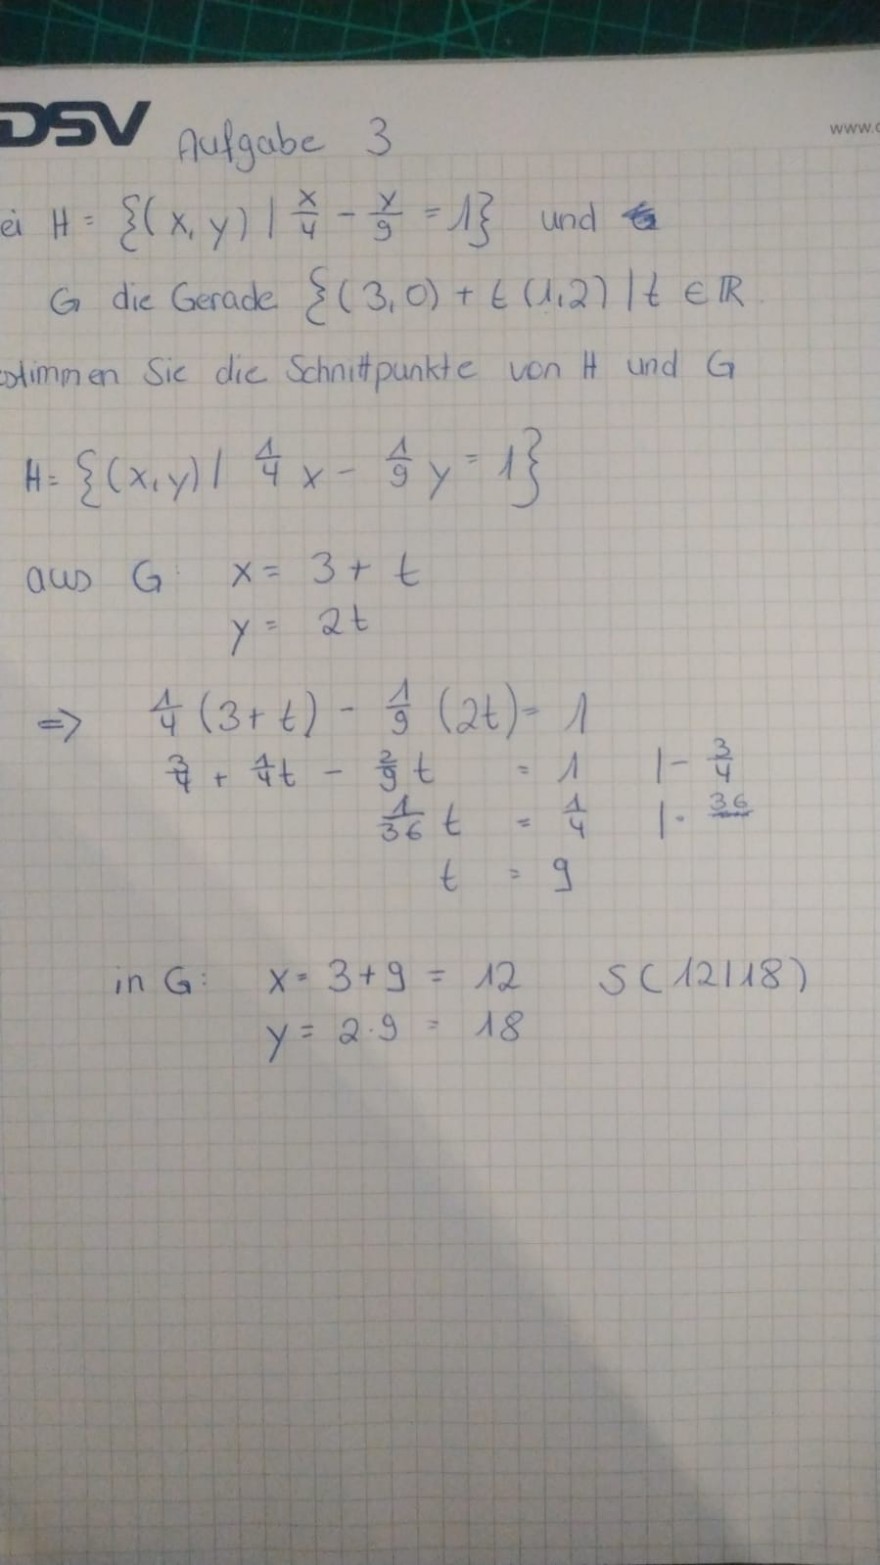 DSV
www.
Aufgabe 3
ei H = {(x, y) | x/4 - y/9 = 1} und
G die Gerade {(3,0) + t (1,2) | t ∈ ℝ
stimmen Sie die Schnittpunkte von H und G
H = {(x,y) | 1/4 x - 1/9 y = 1}
aus G: x = 3 + t
y = 2t
=> 1/4 (3+t) - 1/9 (2t) = 1
3/4 + 1/4 t - 2/9 t = 1 | - 3/4
1/36 t = 1/4 | · 36
t = 9
in G: x = 3+9 = 12 S(12|18)
y = 2·9 = 18